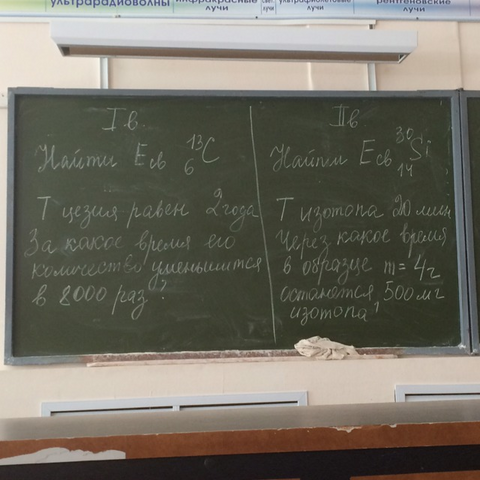 ультрарадиоволны
инфракрасные
лучи
ультрафиолетовые
лучи
рентгеновские
лучи
I в
Найти Е св ¹³₆C
Т цезия равен 2 года
За какое время его
количество уменьшится
в 8000 раз?
II в
Найти Е св ³⁰₁₄Si
Т изотопа 20 мин
Через какое время
в образце m = 4г
останется 500 мг
изотопа?